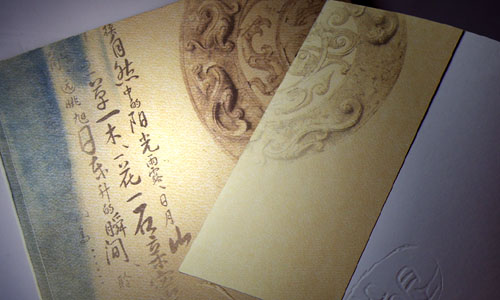 自然中的阳光雨露、日月山
一草一木、一花一石
远眺旭日东升的瞬间、